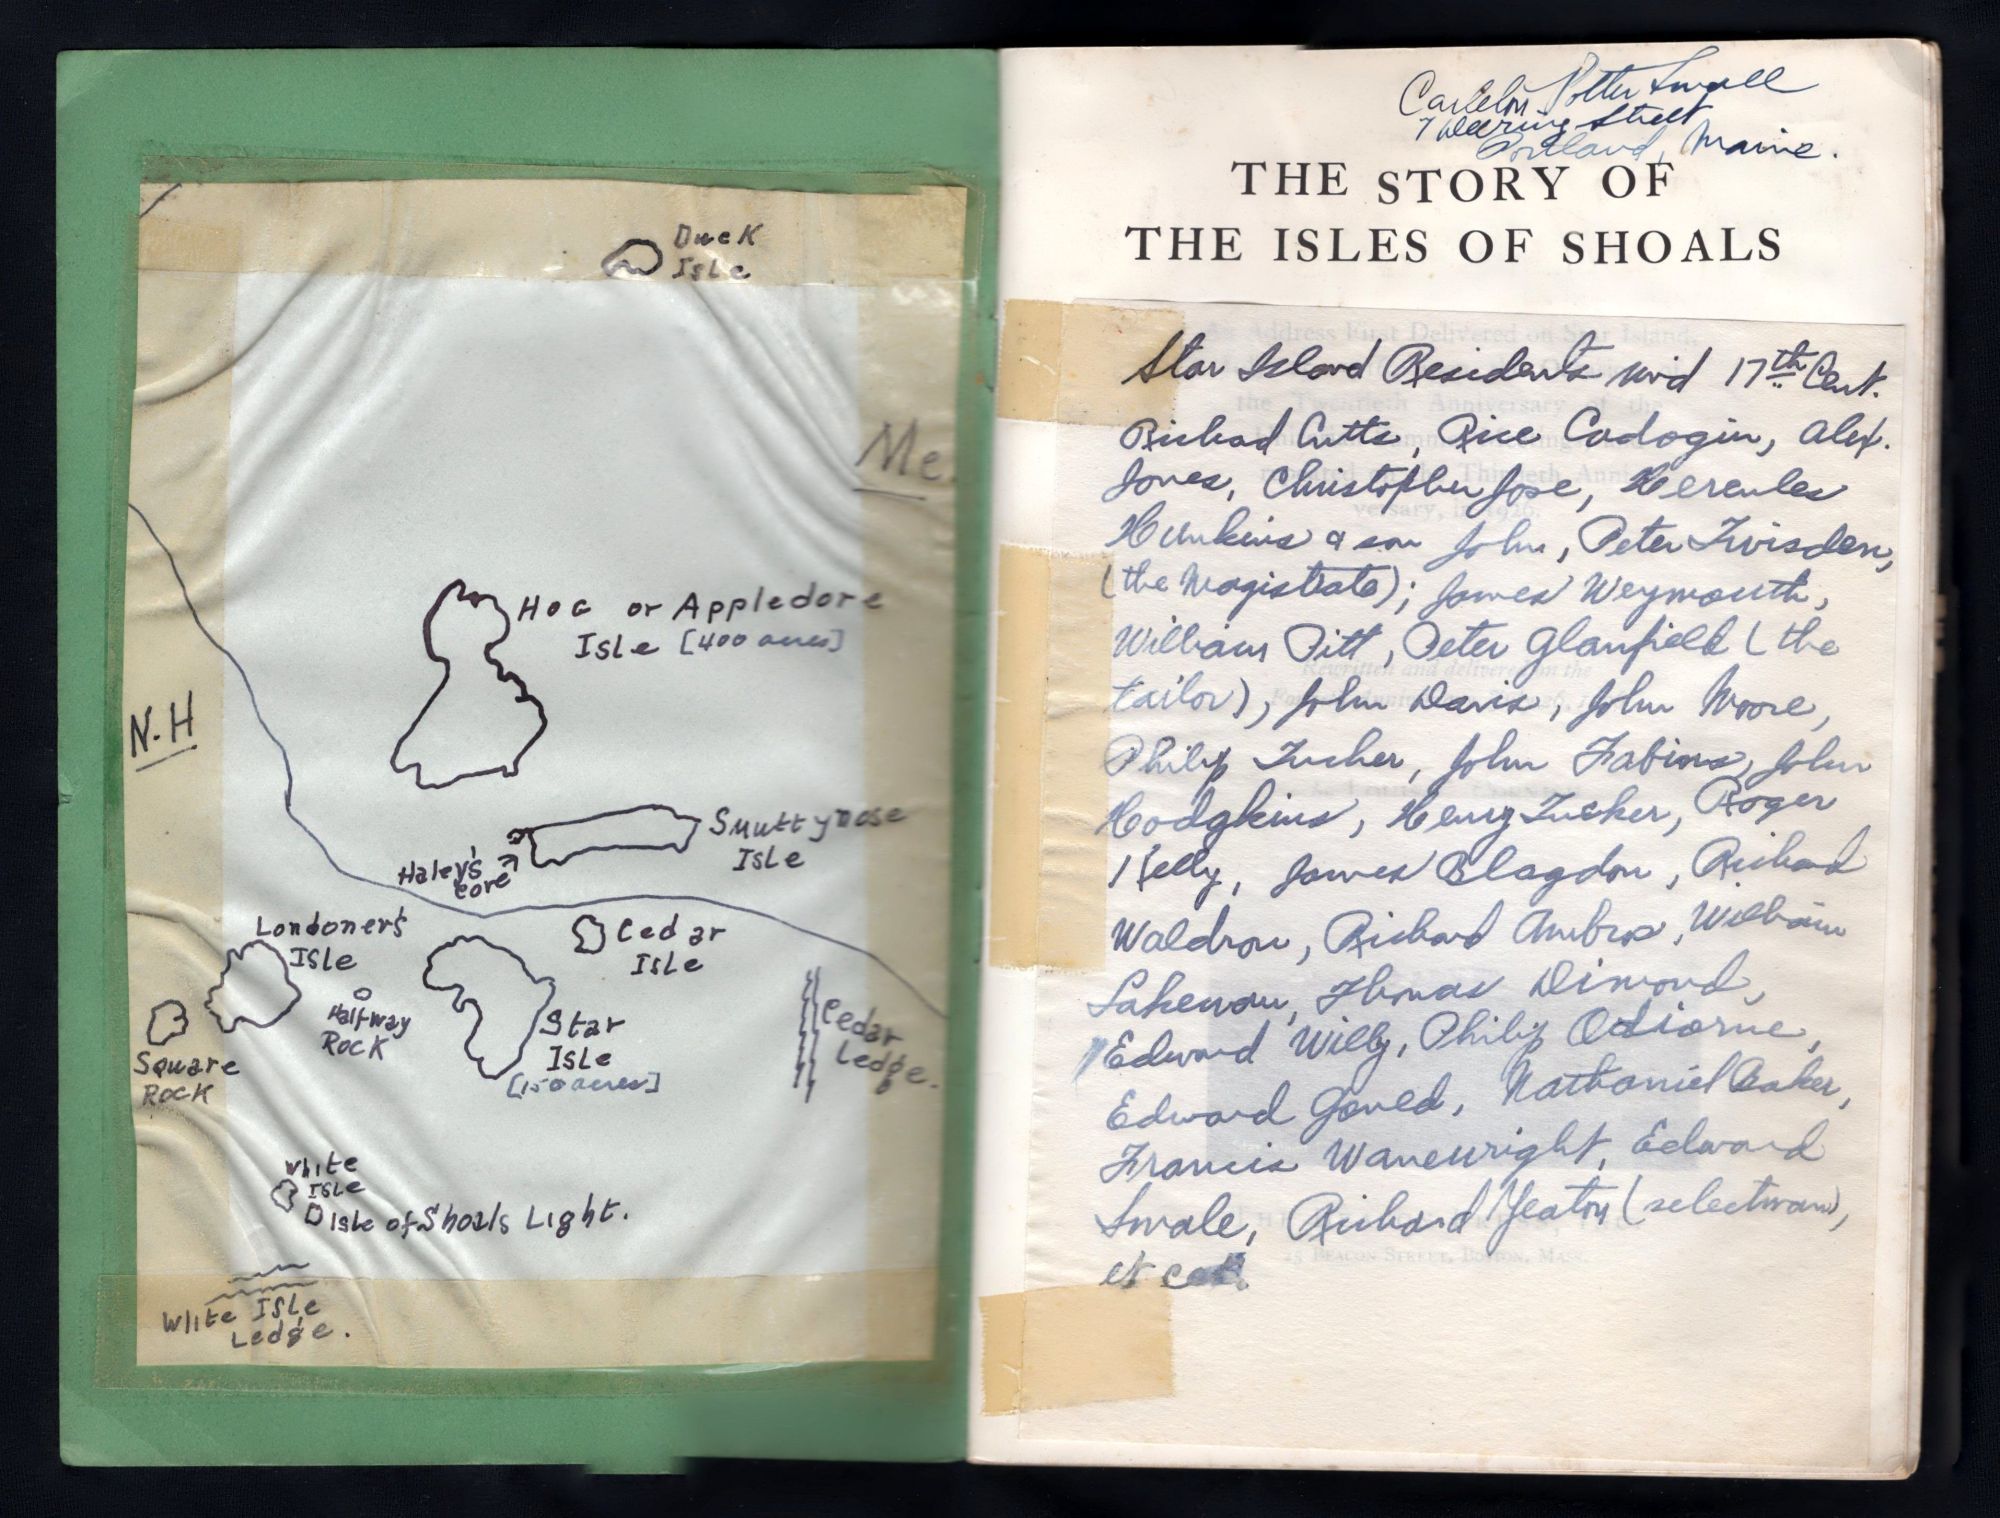 Duck
Isle
Me.
Hog or Appledore
Isle [400 acres]
N.H
Smuttynose
Isle
Haley's
cove
Londoner's
Isle
Cedar
Isle
Halfway
Rock
Star
Isle
[150 acres]
Cedar
Ledge.
Square
Rock
White
Isle
Isle of Shoals Light.
White Isle
Ledge.
Carleton Potter Small
7 Deering Street
Portland, Maine.
THE STORY OF
THE ISLES OF SHOALS
Star Island Residents mid 17th Cent.
Richard Cutts, Rice Cadogin, Alex.
Jones, Christopher Jose, Hercules
Hunkins & son John, Peter Twisden,
(the Magistrate); James Weymouth,
William Pitt, Peter Glanfield (the
tailor), John Davis, John Moore,
Philip Tucker, John Fabins, John
Hodgkins, Henry Tucker, Roger
Kelly, James Blagdon, Richard
Waldron, Richard Ambros, William
Lakeman, Thomas Dimond,
Edward Willy, Philip Odiorne,
Edward Goved, Nathaniel Baker,
Francis Wanewright, Edward
Smale, Richard Yeaton (selectman),
et cet.
25 BEACON STREET, BOSTON, MASS